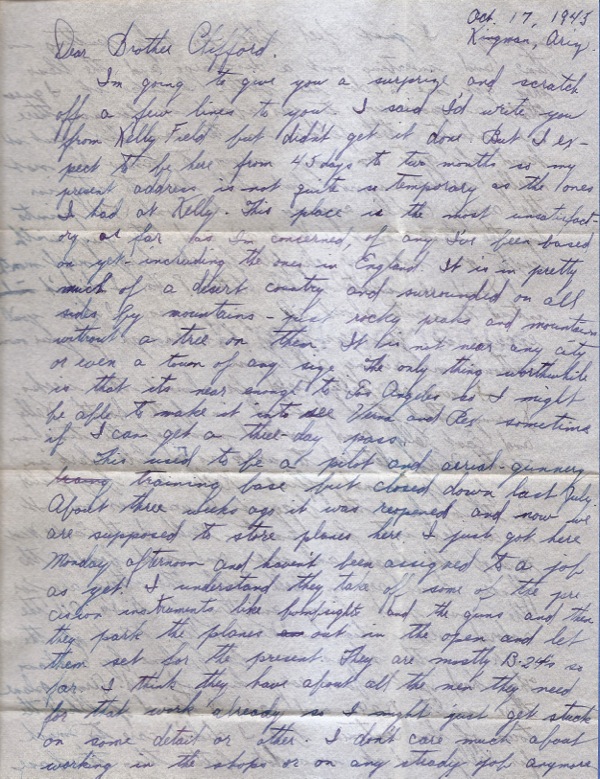 Oct. 17, 1945
Kingman, Ariz.
Dear Brother Clifford.
I'm going to give you a surprize and scratch
off a few lines to you. I said I'd write you
from Kelly Field but didn't get it done. But I ex-
pect to be here from 45 days to two months so my
present address is not quite as temporary as the ones
I had at Kelly. This place is the most unsatisfact-
ory, as far as I'm concerned, of any I've been based
on yet - including the ones in England. It is in pretty
much of a desert country and surrounded on all
sides by mountains - just rocky peaks and mountains
without a tree on them. It is not near any city
or even a town of any size. The only thing worthwhile
is that its near enough to Los Angeles so I might
be able to make it into see and Rex sometime
if I can get a three-day pass.
This used to be a pilot and aerial-gunnery
training base but closed down last July.
About three weeks ago it was reopened and now we
are supposed to store planes here. I just got here
Monday afternoon and haven't been assigned to a job
as yet. I understand they take off some of the pre
cision instruments like bombsights and the guns and then
they park the planes out in the open and let
them set for the present. They are mostly B-24s so
far. I think they have about all the men they need
for that work already so I might just get stuck
on some detail or other. I don't care much about
working in the shops or on any steady job anymore